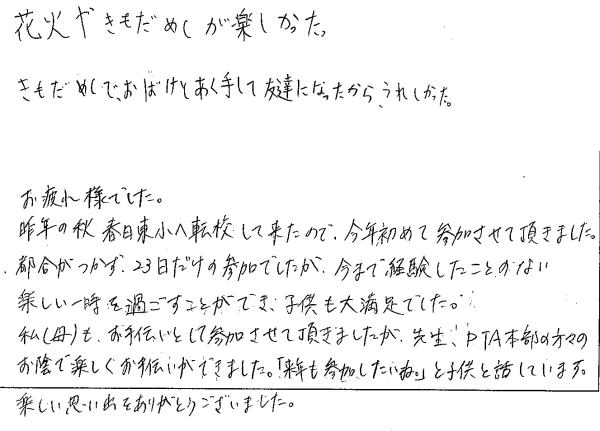 花火やきもだめしが楽しかった。
きもだめしで、おばけとあく手して友達になったから、うれしかった。
お疲れ様でした。
昨年の秋 春日東小へ転校して来たので、今年初めて参加させて頂きました。
都合がつかず、23日だけの参加でしたが、今まで経験したことのない
楽しい一時を過ごすことができ、子供も大満足でした。
私(母)も、お手伝いとして参加させて頂きましたが、先生、PTA本部の方々の
お陰で楽しくお手伝いができました。「来年も参加したいね。」と子供と話しています。
楽しい思い出をありがとうございました。